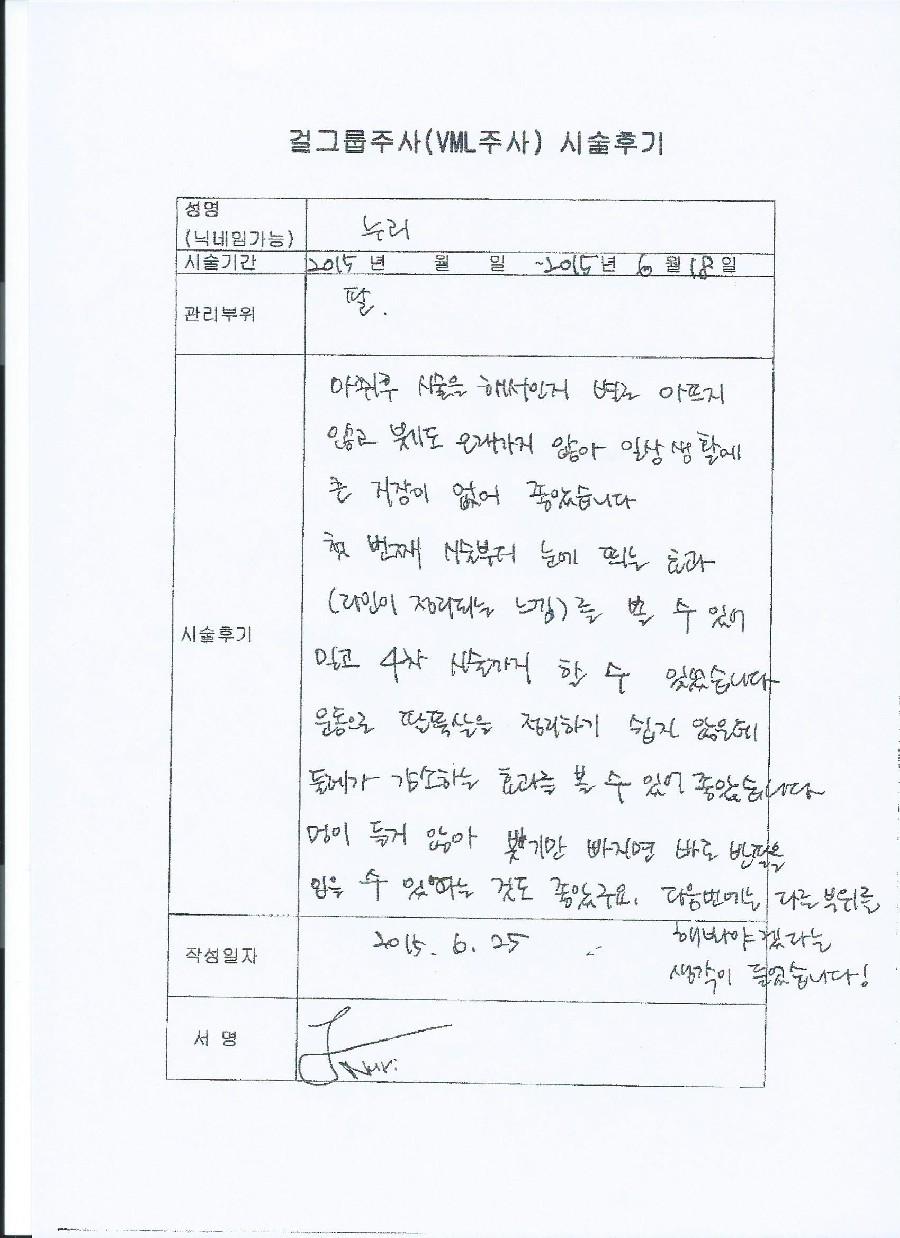 걸그룹주사(VML주사) 시술후기
성명
(닉네임가능)
누리
시술기간
2015 년 월 일 ~2015년 6월 18일
관리부위
팔.
시술후기
마취후 시술을 해서인지 별로 아프지
않고 붓기도 오래가지 않아 일상생활에
큰 지장이 없어 좋았습니다
첫 번째 시술부터 눈에 띄는 효과
(라인이 정리되는 느낌)를 볼 수 있어
믿고 4차 시술까지 할 수 있었습니다
운동으로 팔뚝살을 정리하기 쉽지 않은데
둘레가 감소하는 효과를 볼 수 있어 좋았습니다
멍이 들지 않아 붓기만 빠지면 바로 반팔을
입을 수 있다는 것도 좋았구요. 다음번에는 다른 부위를
해봐야겠다는
생각이 들었습니다!
작성일자
2015. 6. 25
서 명
Nuri